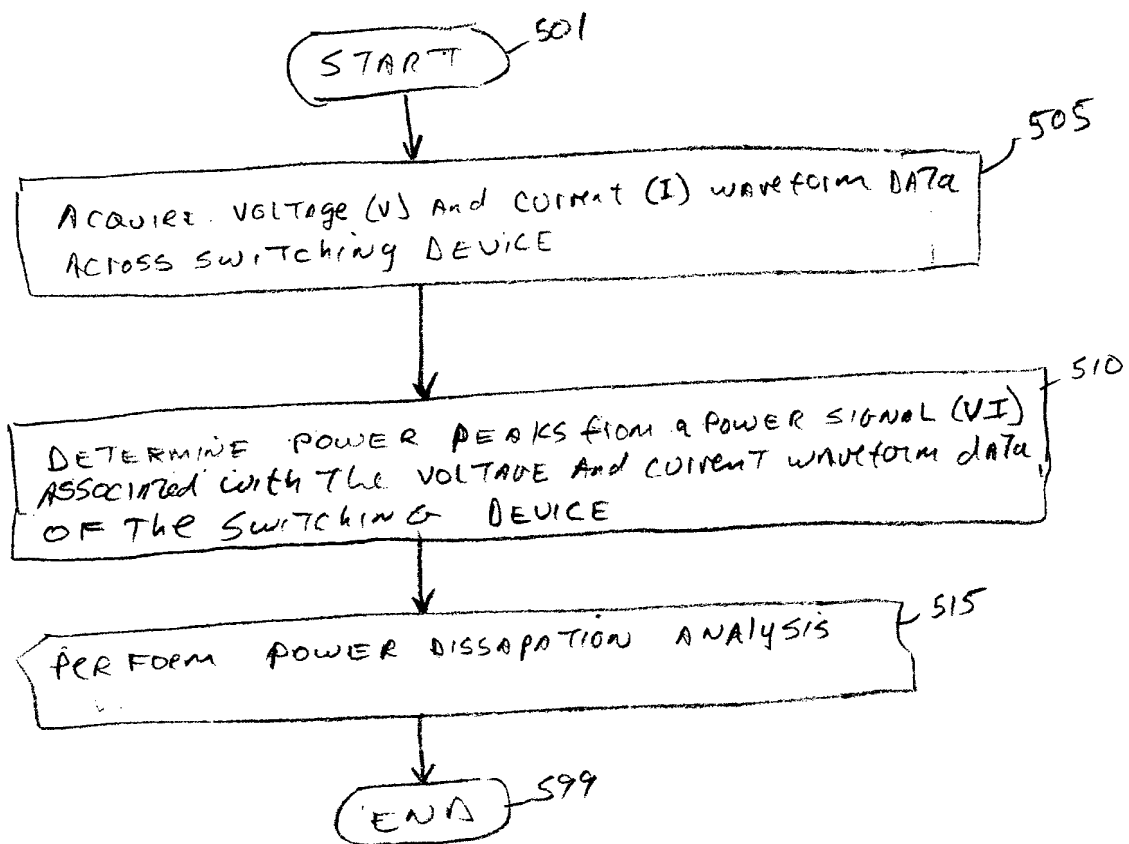 START
501
505
ACQUIRE VOLTAGE (V) And CURRENT (I) WAVEFORM DATA
ACROSS SWITCHING DEVICE
510
DETERMINE POWER PEAKS from a POWER SIGNAL (VI)
ASSOCIATED with The VOLTAGE And CURRENT WAVEFORM dATA
OF The SWITCHING DEVICE
515
PERFORM POWER DISSAPATION ANALYSIS
END
599